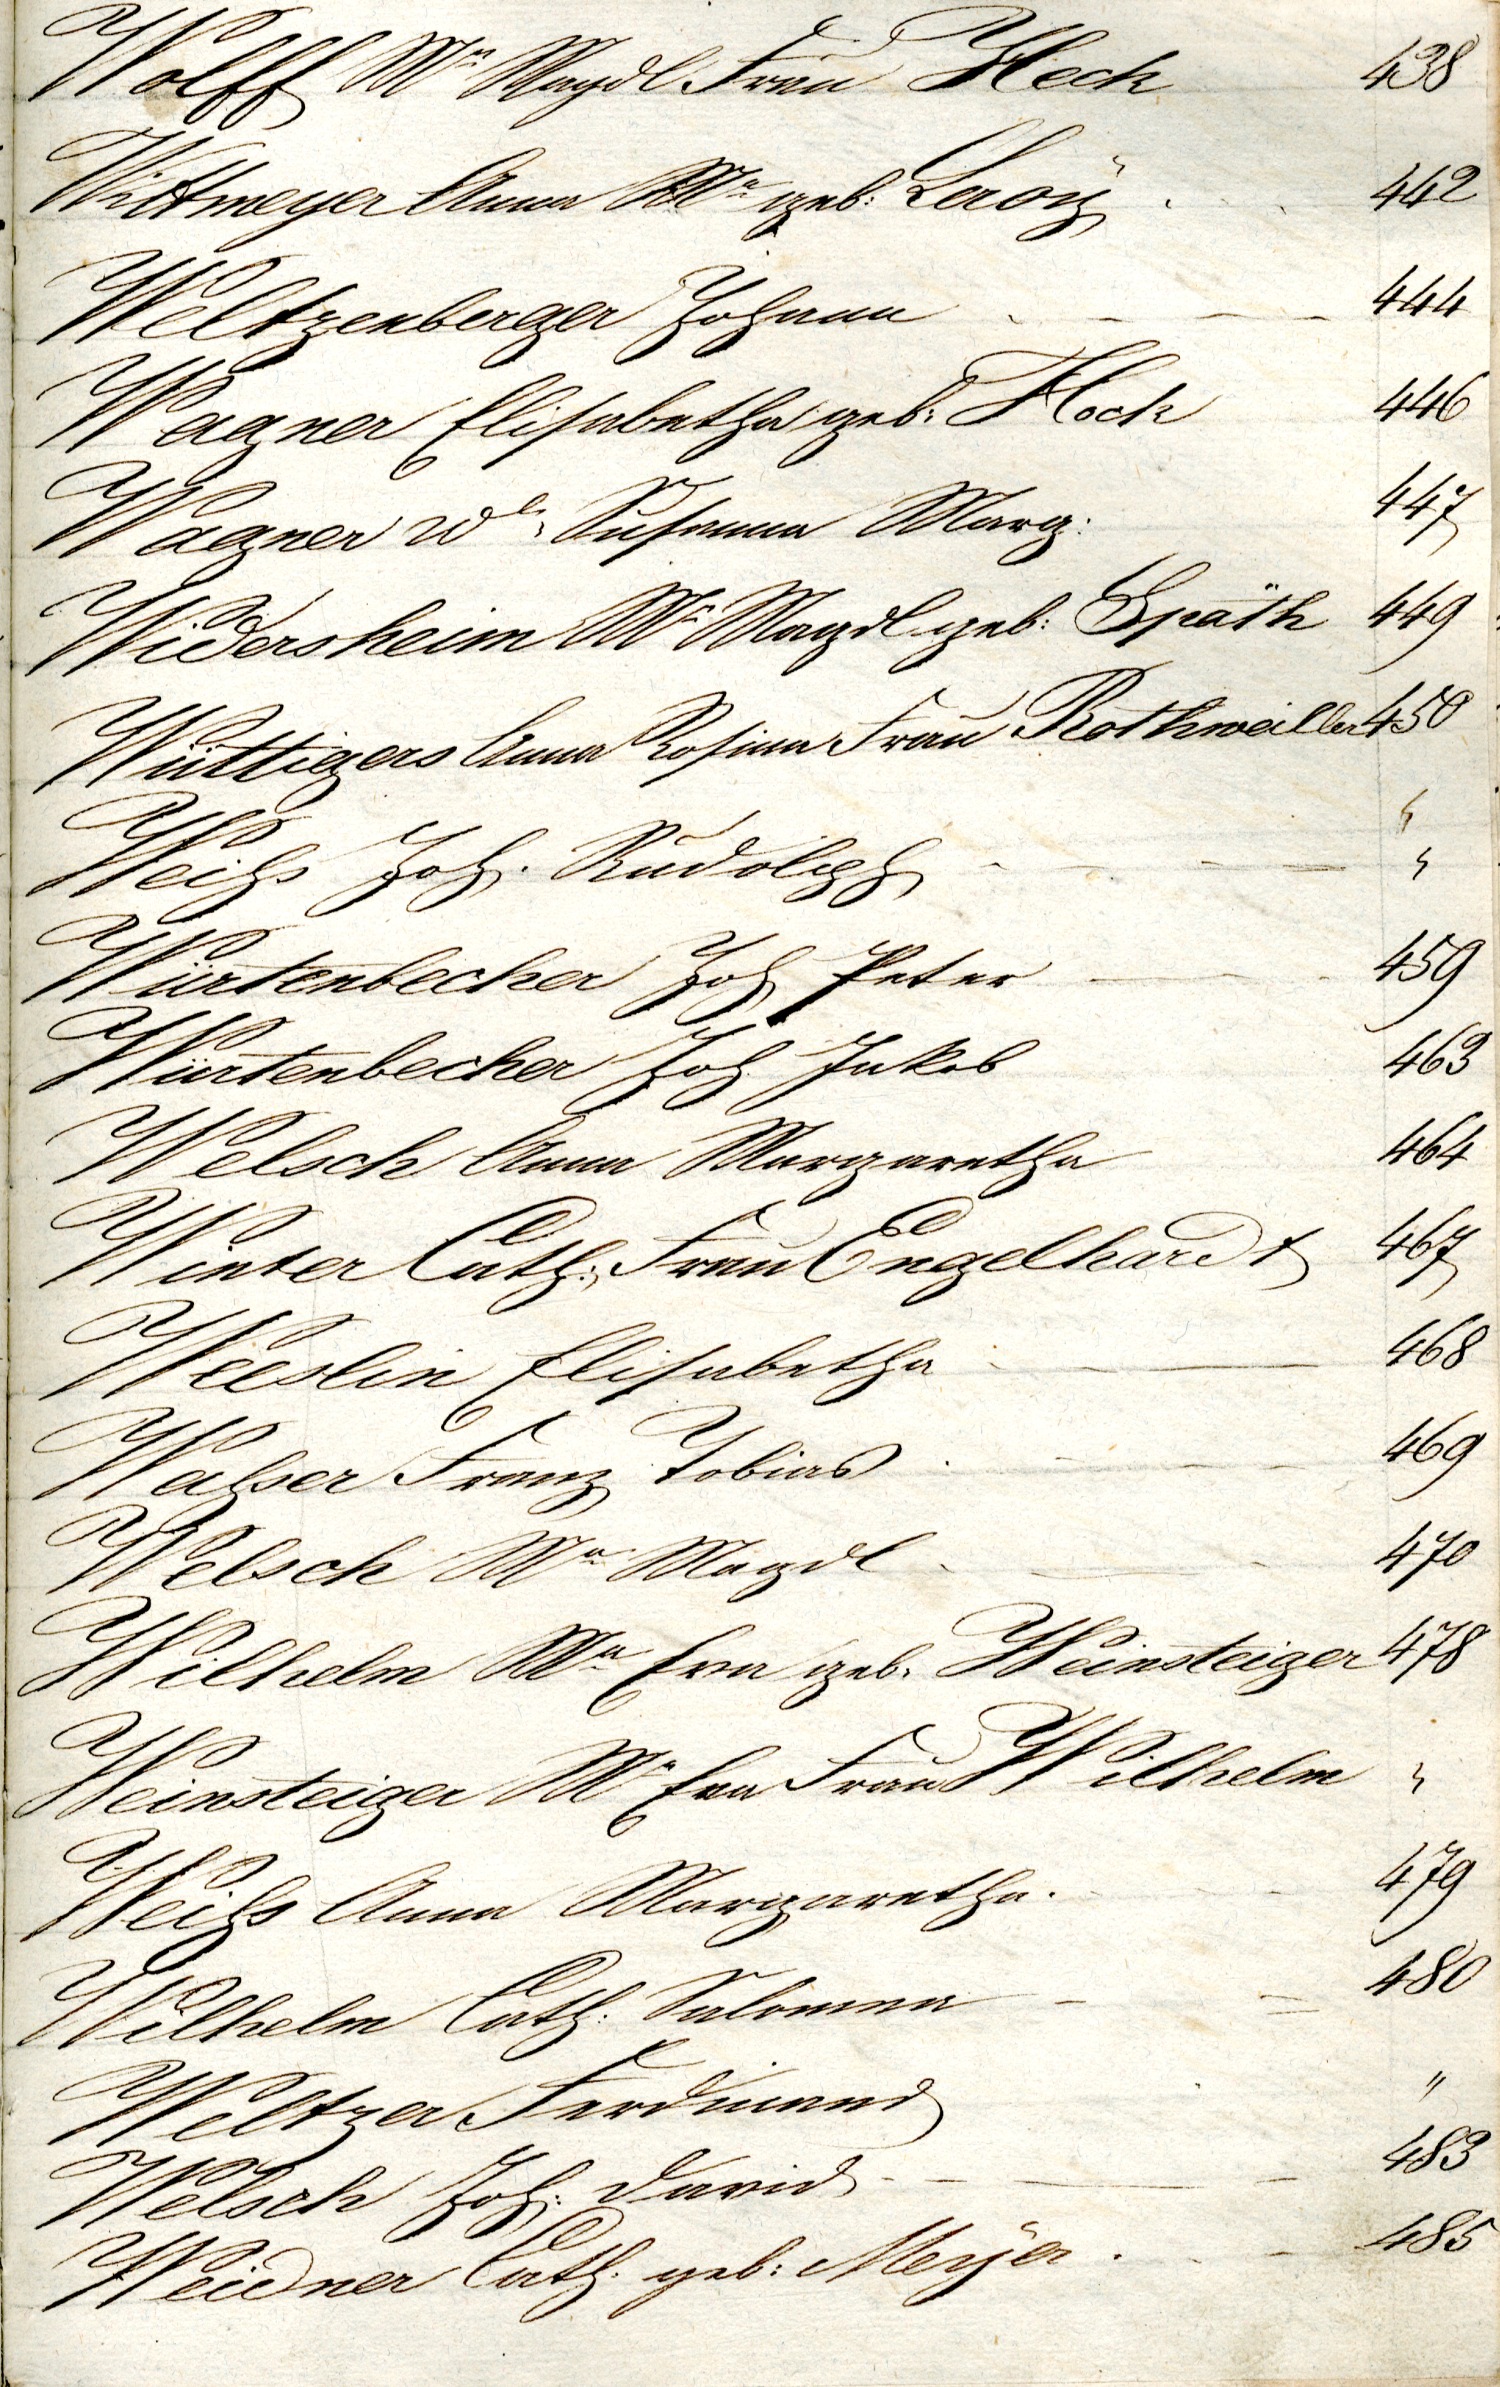 Wolff Mª Magdl Frau Heck 438
Wittmeyer Anna Mª geb: Leroÿ . . . 442
Weltzenberger Johann - - - - 444
Wagner Elisabetha geb: Flock 446
Wagner Wb. Susanna Marg: 447
Widersheim Mª Magdl geb: Späth 449
Wüttigers Anna Rosina Frau Rothweiller 450
"
Weihs Joh. Rudolph - - - "
Würtenbecher Joh Peter - - - 459
Würtenbecher Joh Jakob 463
Welsch Anna Margaretha 464
Winter Cath: Frau Engelhardt 467
Weeslin Elisabetha - - - 468
Walser Franz Tobias . - - - 469
Welsch Mª Magdl - - - 470
Wilhelm Mª Eva geb. Weinsteiger 478
Weinsteiger Mª Eva Frau Wilhelm "
Weihs Anna Margaretha. - - 479
Wilhelm Cath: Salomea - - 480
Weltzer Ferdinand "
Welsch Joh: David - - - 483
Weidner Cath. geb: Meÿer . - - 485